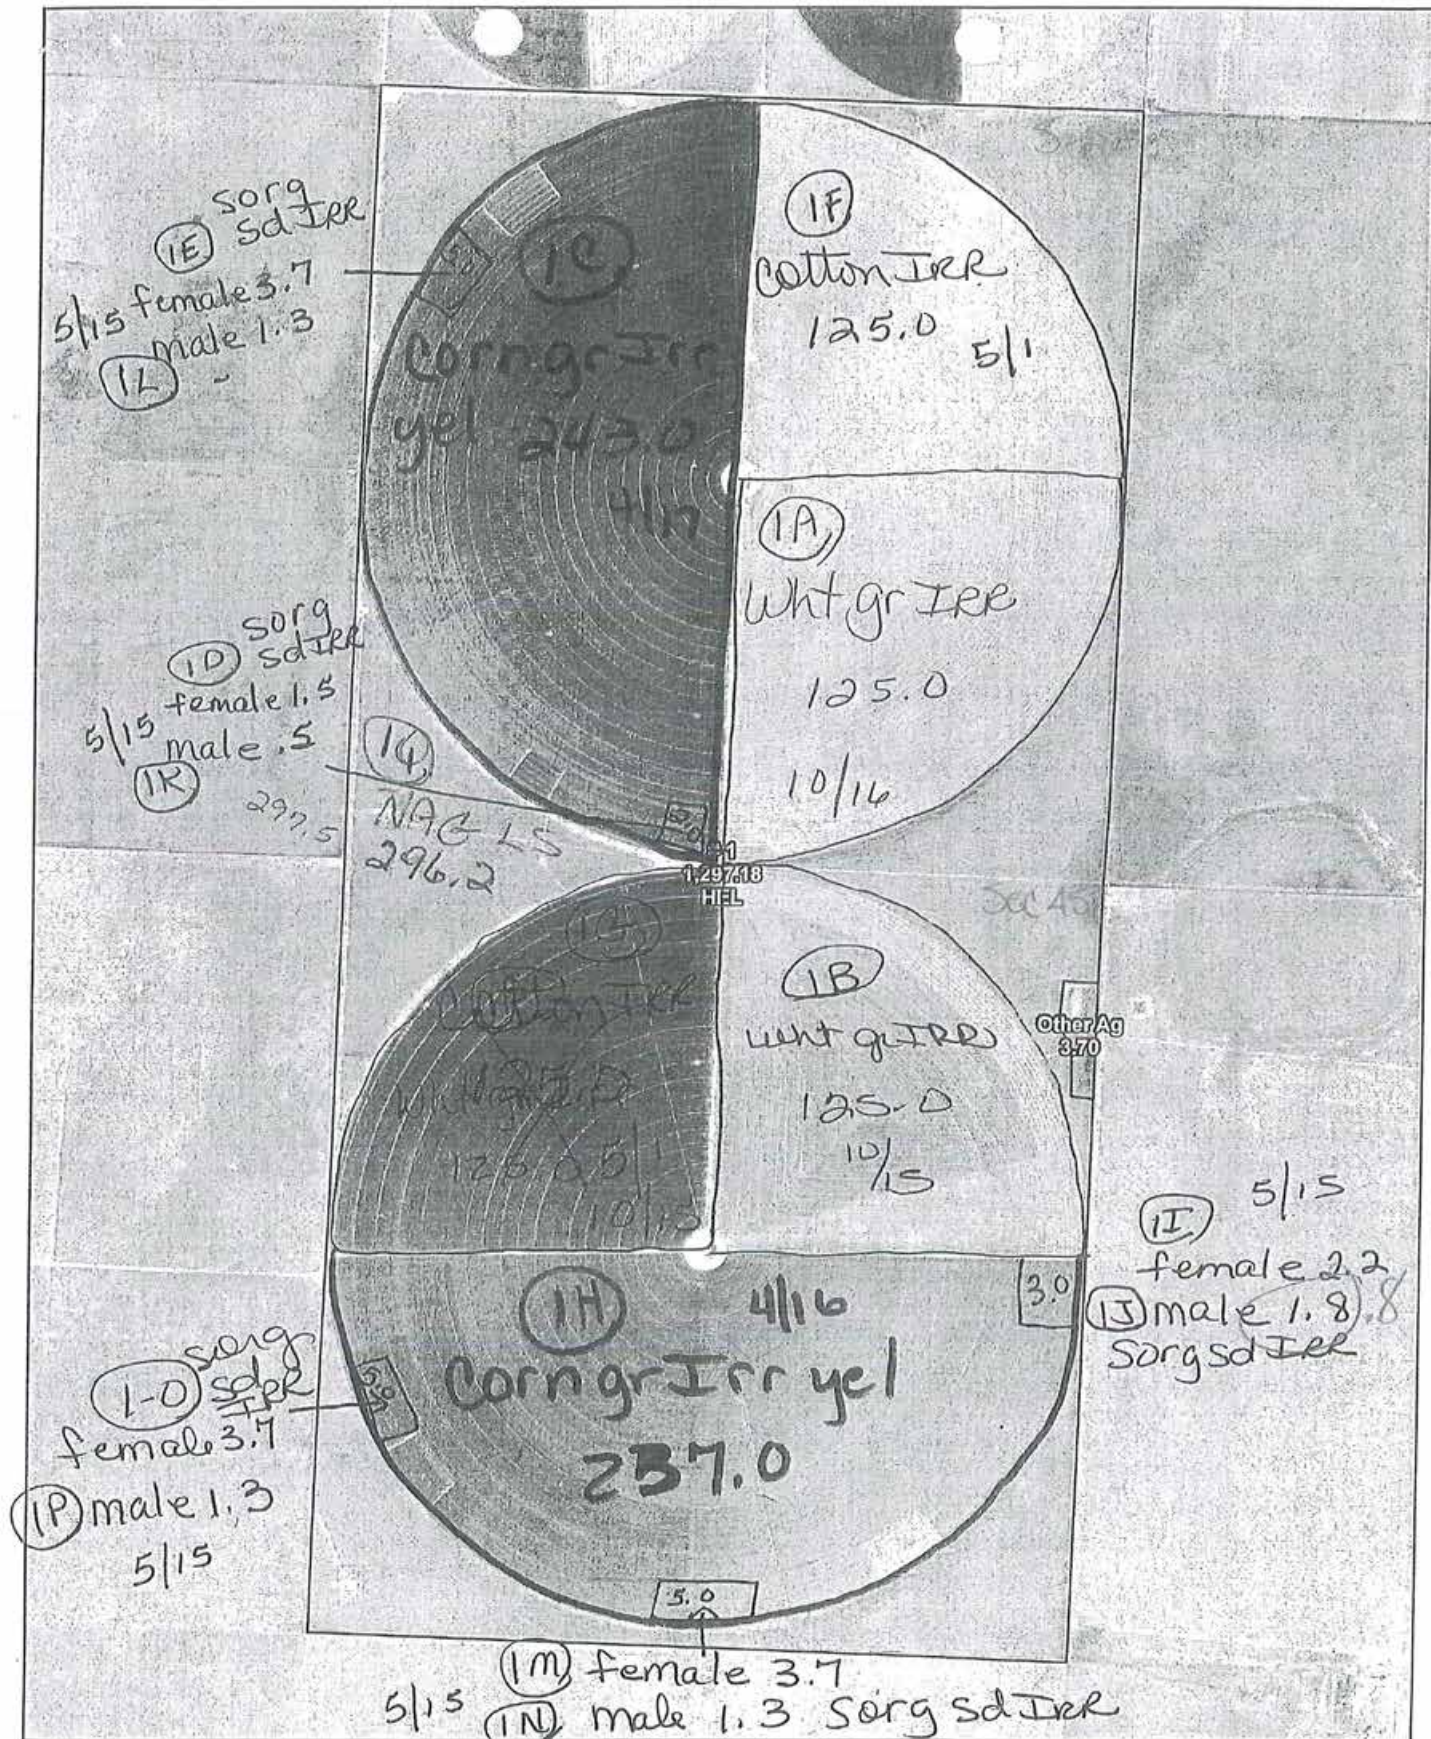 sorg
1E sd IRR
5/15 female 3.7
male 1.3
1L
5.0
1C
Corn gr Irr
yel 243.0
1F
Cotton IRR
125.0
5/1
1A
Wht gr IRR
125.0
10/16
sorg
1D sd IRR
female 1.5
5/15 male .5
1K
297.5
NAG LS
296.2
2.0
1,297.18
HEL
Cotton IRR
125.0
5/1
10/15
1B
Wht gr IRR
125.0
10/15
Other Ag
3.70
5/15
1I
female 2.2
1J male 1.8 .8
Sorg sd IRR
3.0
1H 4/16
Corn gr Irr yel
237.0
sorg
1-O sd
IRR
5.0
female 3.7
1P male 1.3
5/15
5.0
1M female 3.7
5/15 1N male 1.3 Sorg sd IRR